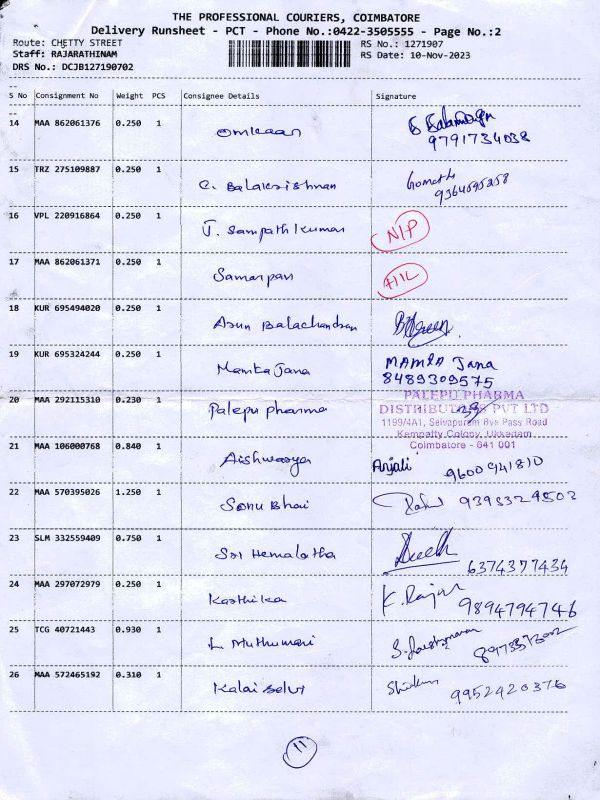 THE PROFESSIONAL COURIERS, COIMBATORE
Delivery Runsheet - PCT - Phone No.:0422-3505555 - Page No.:2
Route: CHETTY STREET RS No.: 1271907
Staff: RAJARATHINAM RS Date: 10-Nov-2023
DRS No.: DCJB127190702
S No Consignment No Weight PCS Consignee Details Signature
14 MAA 862061376 0.250 1 Omkaar
9791734038
15 TRZ 275109887 0.250 1 C. Balakrishnan
16 VPL 220916864 0.250 1 T. Sampath Kumar N/P
17 MAA 862061371 0.250 1 Samarpan H/L
18 KUR 695494020 0.250 1 Arun Balachandran
19 KUR 695324244 0.250 1 Mamta Jana MAMTA Jana
8489309575
20 MAA 292115310 0.230 1 Palepu pharma PALEPU PHARMA
DISTRIBUTORS PVT LTD
1199/4A1, Selvapuram Bye Pass Road
Kempatty Colony, Ukkadam
Coimbatore - 641 001
21 MAA 106000768 0.840 1 Aishwarya Anjali 9600941810
22 MAA 570395026 1.250 1 Sonu Bhai 9393329502
23 SLM 332559409 0.750 1 Sri Hemalatha
6374377434
24 MAA 297072979 0.250 1 Karthika K. Rajan
9894794746
25 TCG 40721443 0.930 1 L. Muthumari
26 MAA 572465192 0.310 1 Kalai Selvi 9952420376
11